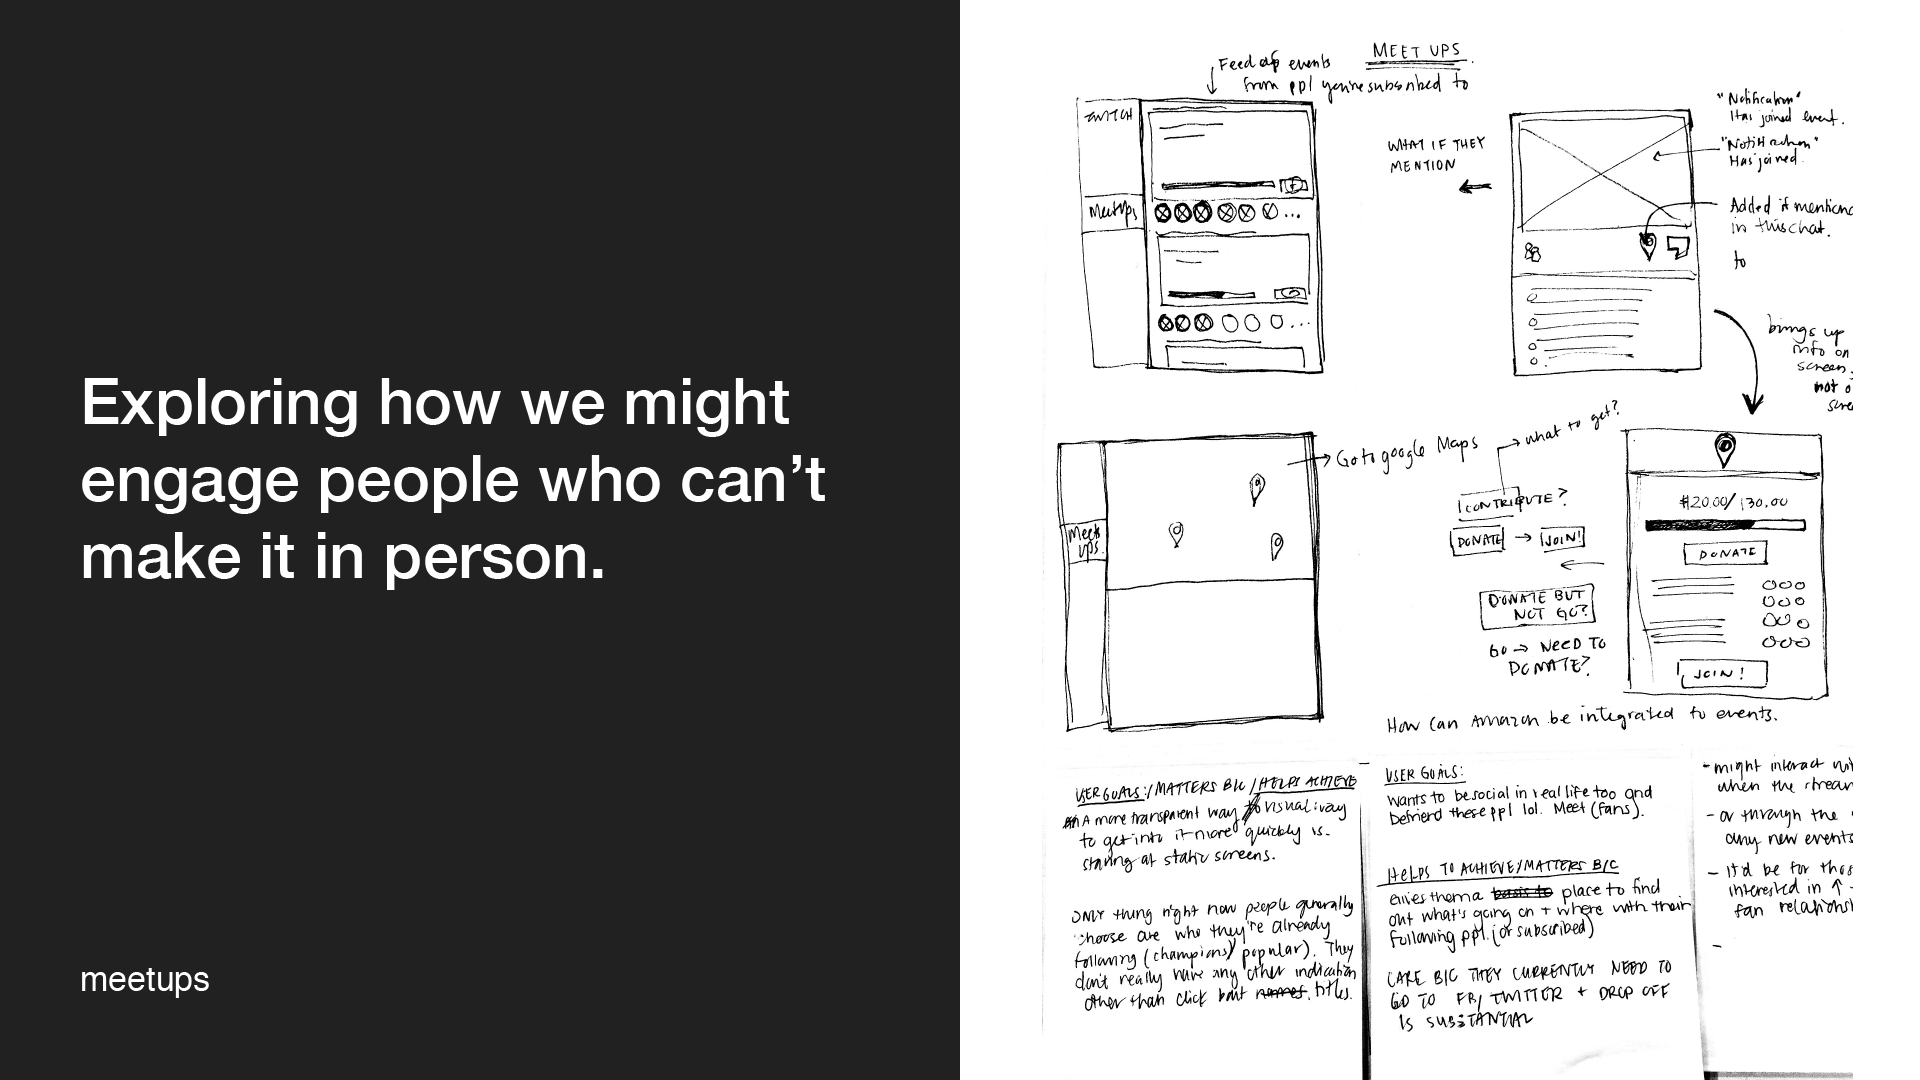 Exploring how we might
engage people who can’t
make it in person.
meetups
MEET UPS
Feed of events
from ppl you're subscribed to
MeetUps
WHAT IF THEY
MENTION
"Notification"
Has joined event.
"Notification"
Has joined.
Added if mentione
in this chat.
to
brings up
info on
screen.
not o
scre
Meet
ups.
Go to google Maps
what to get?
CONTRIBUTE?
DONATE → JOIN!
DONATE BUT
NOT GO?
GO → NEED TO
DONATE?
$120.00/130.00
DONATE
JOIN!
How can Amazon be integrated to events.
USER GOALS:/MATTERS B/C/HELPS ACHIEVE
A more transparent way visual way
to get into it more quickly is.
staring at static screens.
ONLY thing right now people generally
choose are who they're already
following (champions/popular). They
don't really have any other indication
other than click bait names. titles.
USER GOALS:
Wants to be social in real life too and
befriend these ppl lol. Meet (fans).
HELPS TO ACHIEVE/MATTERS B/C
Gives them a basis to place to find
out what's going on + where with their
following ppl. (or subscribed)
CARE B/C THEY CURRENTLY NEED TO
GO TO FB/TWITTER + DROP OFF
IS SUBSTANTIAL
- might interact wi
when the stream
- or through the
any new events
- It'd be for thos
interested in ↑
fan relations
-